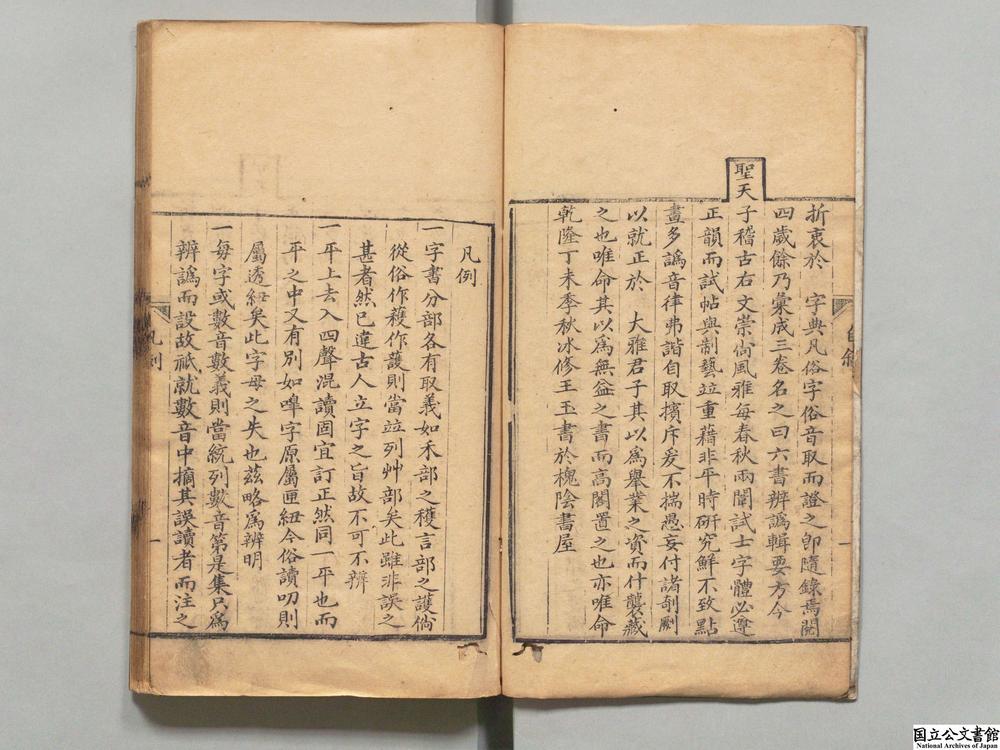 折衷於　字典凡俗字俗音取而證之卽隨錄焉閱
四歲餘乃彙成三卷名之曰六書辨譌輯要方今
聖天子稽古右文崇尙風雅每春秋兩闈試士字體必遵
正韻而試帖與制藝竝重藉非平時硏究鮮不致點
畫多譌音律弗諧自取擯斥爰不揣愚妄付諸剞劂
以就正於　大雅君子其以爲舉業之資而什襲藏
之也唯命其以爲無益之書而高閣置之也亦唯命
乾隆丁未季秋冰修王玉書於槐陰書屋
一
凡例
一字書分部各有取義如禾部之穫言部之護倘
從俗作蕿作護則當竝列艸部矣此雖非誤之
甚者然已違古人立字之旨故不可不辨
一平上去入四聲混讀固宜訂正然同一平也而
平之中又有別如嘷字原屬匣紐今俗讀叨則
屬透紐矣此字母之失也茲略爲辨明
一每字或數音數義則當統列數音第是集只爲
辨譌而設故祇就數音中摘其誤讀者而注之
凡例
一
国立公文書館
National Archives of Japan